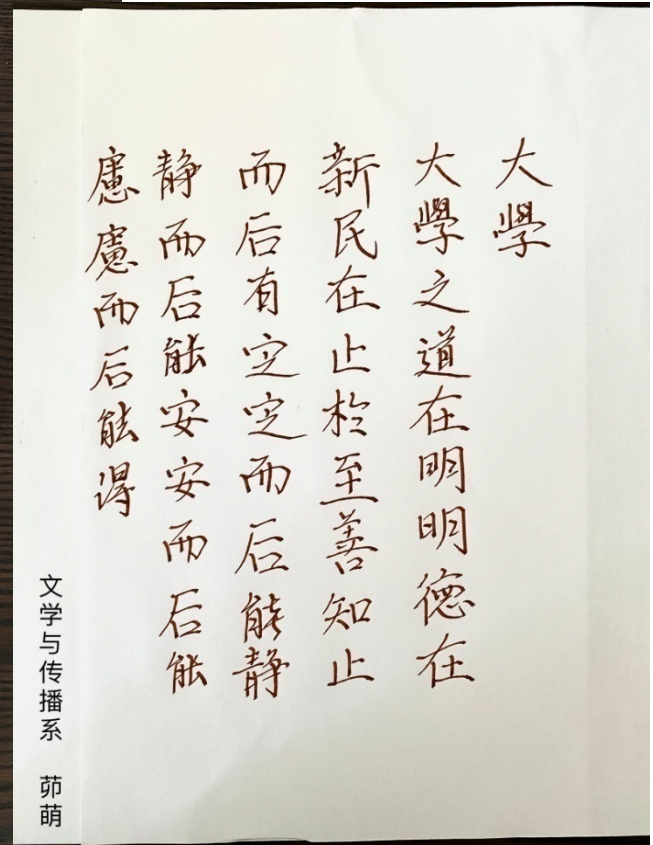 大學
大學之道在明明德在
新民在止於至善知止
而后有定定而后能静
静而后能安安而后能
慮慮而后能得
文学与传播系 茆萌